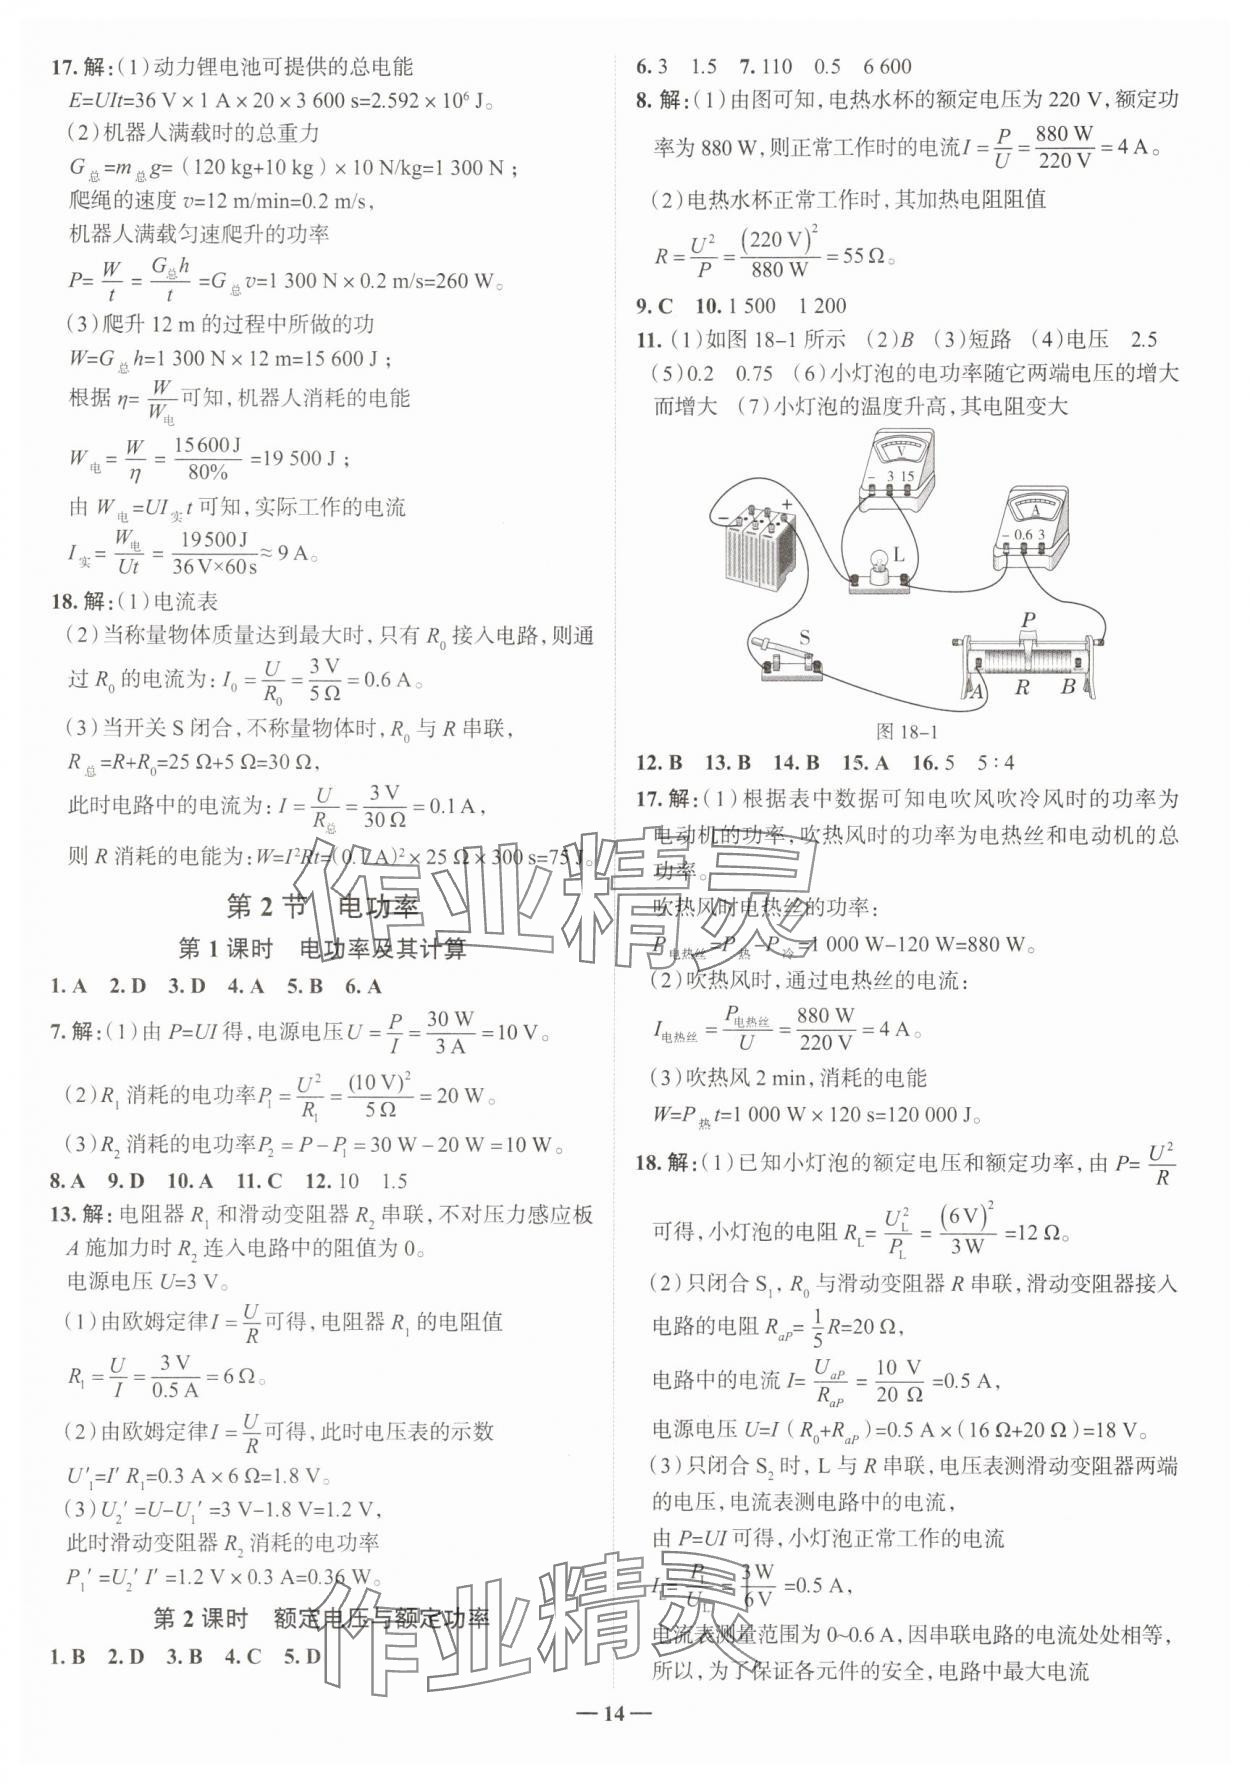 17. 解：(1)动力锂电池可提供的总电能
E=UIt=36 V×1 A×20×3 600 s=2.592×10⁶ J。
(2)机器人满载时的总重力
G总=m总g=（120 kg+10 kg）×10 N/kg=1 300 N；
爬绳的速度 v=12 m/min=0.2 m/s，
机器人满载匀速爬升的功率
P=W/t=G总h/t=G总v=1 300 N×0.2 m/s=260 W。
(3)爬升 12 m 的过程中所做的功
W=G总h=1 300 N×12 m=15 600 J；
根据 η=W/W电可知，机器人消耗的电能
W电=W/η=15 600 J/80%=19 500 J；
由 W电=UI实t 可知，实际工作的电流
I实=W电/Ut=19 500 J/36 V×60 s≈9 A。
18. 解：(1)电流表
(2)当称量物体质量达到最大时，只有 R₀ 接入电路，则通
过 R₀ 的电流为：I₀=U/R₀=3 V/5 Ω=0.6 A。
(3)当开关 S 闭合，不称量物体时，R₀ 与 R 串联，
R总=R+R₀=25 Ω+5 Ω=30 Ω，
此时电路中的电流为：I=U/R总=3 V/30 Ω=0.1 A，
则 R 消耗的电能为：W=I²Rt=(0.1 A)²×25 Ω×300 s=75 J。
第 2 节 电功率
第 1 课时 电功率及其计算
1. A 2. D 3. D 4. A 5. B 6. A
7. 解：(1)由 P=UI 得，电源电压 U=P/I=30 W/3 A=10 V。
(2)R₁ 消耗的电功率P₁=U²/R₁=(10 V)²/5 Ω=20 W。
(3)R₂ 消耗的电功率P₂=P−P₁=30 W−20 W=10 W。
8. A 9. D 10. A 11. C 12. 10 1.5
13. 解：电阻器 R₁ 和滑动变阻器 R₂ 串联，不对压力感应板
A 施加力时 R₂ 连入电路中的阻值为 0。
电源电压 U=3 V。
(1)由欧姆定律I=U/R可得，电阻器 R₁ 的电阻值
R₁=U/I=3 V/0.5 A=6 Ω。
(2)由欧姆定律I=U/R可得，此时电压表的示数
U′₁=I′ R₁=0.3 A×6 Ω=1.8 V。
(3)U₂′=U−U₁′=3 V−1.8 V=1.2 V，
此时滑动变阻器 R₂ 消耗的电功率
P₁′=U₂′ I′=1.2 V×0.3 A=0.36 W。
第 2 课时 额定电压与额定功率
1. B 2. D 3. B 4. C 5. D
6. 3 1.5 7. 110 0.5 6 600
8. 解：(1)由图可知，电热水杯的额定电压为 220 V，额定功
率为 880 W，则正常工作时的电流I=P/U=880 W/220 V=4 A。
(2)电热水杯正常工作时，其加热电阻阻值
R=U²/P=(220 V)²/880 W=55 Ω。
9. C 10. 1 500 1 200
11. (1)如图 18-1 所示 (2)B (3)短路 (4)电压 2.5
(5)0.2 0.75 (6)小灯泡的电功率随它两端电压的增大
而增大 (7)小灯泡的温度升高，其电阻变大
V
- 3 15
A
- 0.6 3
- +
L
S
P
A R B
图 18-1
12. B 13. B 14. B 15. A 16. 5 5∶4
17. 解：(1)根据表中数据可知电吹风吹冷风时的功率为
电动机的功率，吹热风时的功率为电热丝和电动机的总
功率。
吹热风时电热丝的功率：
P电热丝=P热−P冷=1 000 W-120 W=880 W。
(2)吹热风时，通过电热丝的电流：
I电热丝=P电热丝/U=880 W/220 V=4 A。
(3)吹热风 2 min，消耗的电能
W=P热t=1 000 W×120 s=120 000 J。
18. 解：(1)已知小灯泡的额定电压和额定功率，由 P=U²/R
可得，小灯泡的电阻 R_L=U_L²/P_L=(6 V)²/3 W=12 Ω。
(2)只闭合 S₁，R₀ 与滑动变阻器 R 串联，滑动变阻器接入
电路的电阻 R_aP=1/5 R=20 Ω，
电路中的电流 I=U_aP/R_aP=10 V/20 Ω=0.5 A，
电源电压 U=I（R₀+R_aP）=0.5 A×(16 Ω+20 Ω)=18 V。
(3)只闭合 S₂ 时，L 与 R 串联，电压表测滑动变阻器两端
的电压，电流表测电路中的电流，
由 P=UI 可得，小灯泡正常工作的电流
I_L=P_L/U_L=3 W/6 V=0.5 A，
电流表测量范围为 0~0.6 A，因串联电路的电流处处相等，
所以，为了保证各元件的安全，电路中最大电流
— 14 —
作业精灵
作业精灵